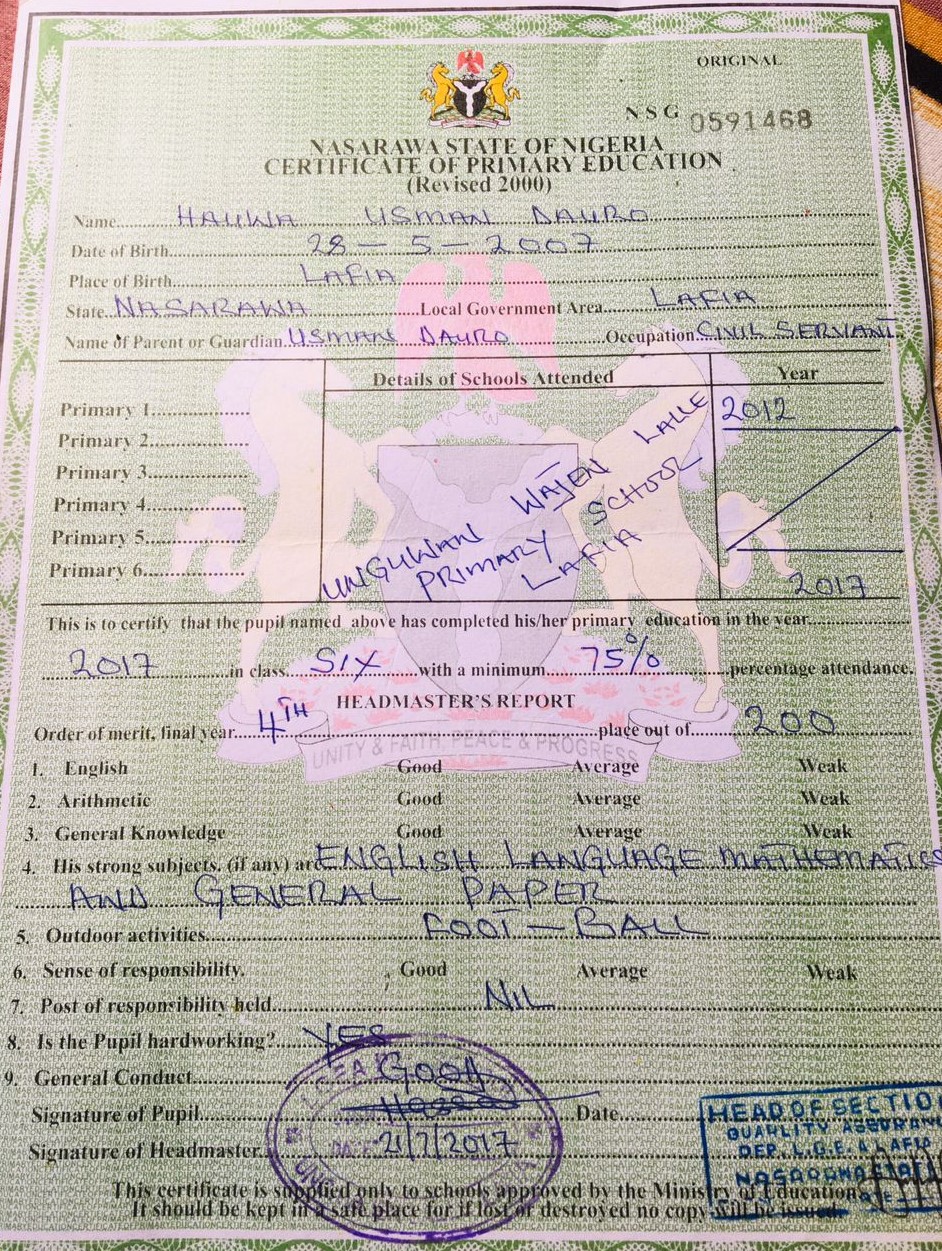 ORIGINAL
NSG 0591468
NASARAWA STATE OF NIGERIA
CERTIFICATE OF PRIMARY EDUCATION
(Revised 2000)
Name HAUWA USMAN DAURO
Date of Birth 28 - 5 - 2007
Place of Birth LAFIA
State NASARAWA Local Government Area LAFIA
Name of Parent or Guardian USMAN DAURO Occupation CIVIL SERVANT
Details of Schools Attended Year
Primary 1 2012
Primary 2
Primary 3
Primary 4
Primary 5
Primary 6 2017
UNGUWAN WAJEN LALLE
PRIMARY SCHOOL
LAFIA
This is to certify that the pupil named above has completed his/her primary education in the year
2017 in class SIX with a minimum 75% percentage attendance.
HEADMASTER'S REPORT
Order of merit, final year 4TH place out of 200
UNITY & FAITH, PEACE & PROGRESS
1. English Good Average Weak
2. Arithmetic Good Average Weak
3. General Knowledge Good Average Weak
4. His strong subjects, (if any) are ENGLISH LANGUAGE MATHEMATICS
AND GENERAL PAPER
5. Outdoor activities FOOT-BALL
6. Sense of responsibility. Good Average Weak
7. Post of responsibility held NIL
8. Is the Pupil hardworking? YES
9. General Conduct GOOD
Signature of Pupil Date
Signature of Headmaster 21/7/2017
HEAD OF SECTIO
QUARLITY ASSURAN
DEP. L.G.E.A LAFIA
This certificate is supplied only to schools approved by the Ministry of Education
It should be kept in a safe place for if lost or destroyed no copy will be issued.